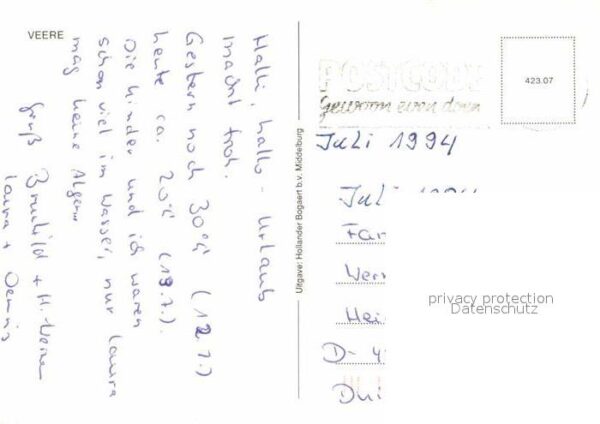 VEERE
Halli, hallo - Urlaub
macht froh.
Gestern noch 30°C (12.7.)
heute ca. 20°C (13.7.).
Die Kinder und ich waren
schon viel im Wasser, nur Laura
mag keine Algen.
Gruß Brunhild + H.
Laura + Dennis
Uitgave: Hollander Bogaert b.v. Middelburg
POSTCODE
gewoon even doen
423.07
Juli 1994
Juli
Far
Wer
Hei
D- 4
Dui
privacy protection
Datenschutz